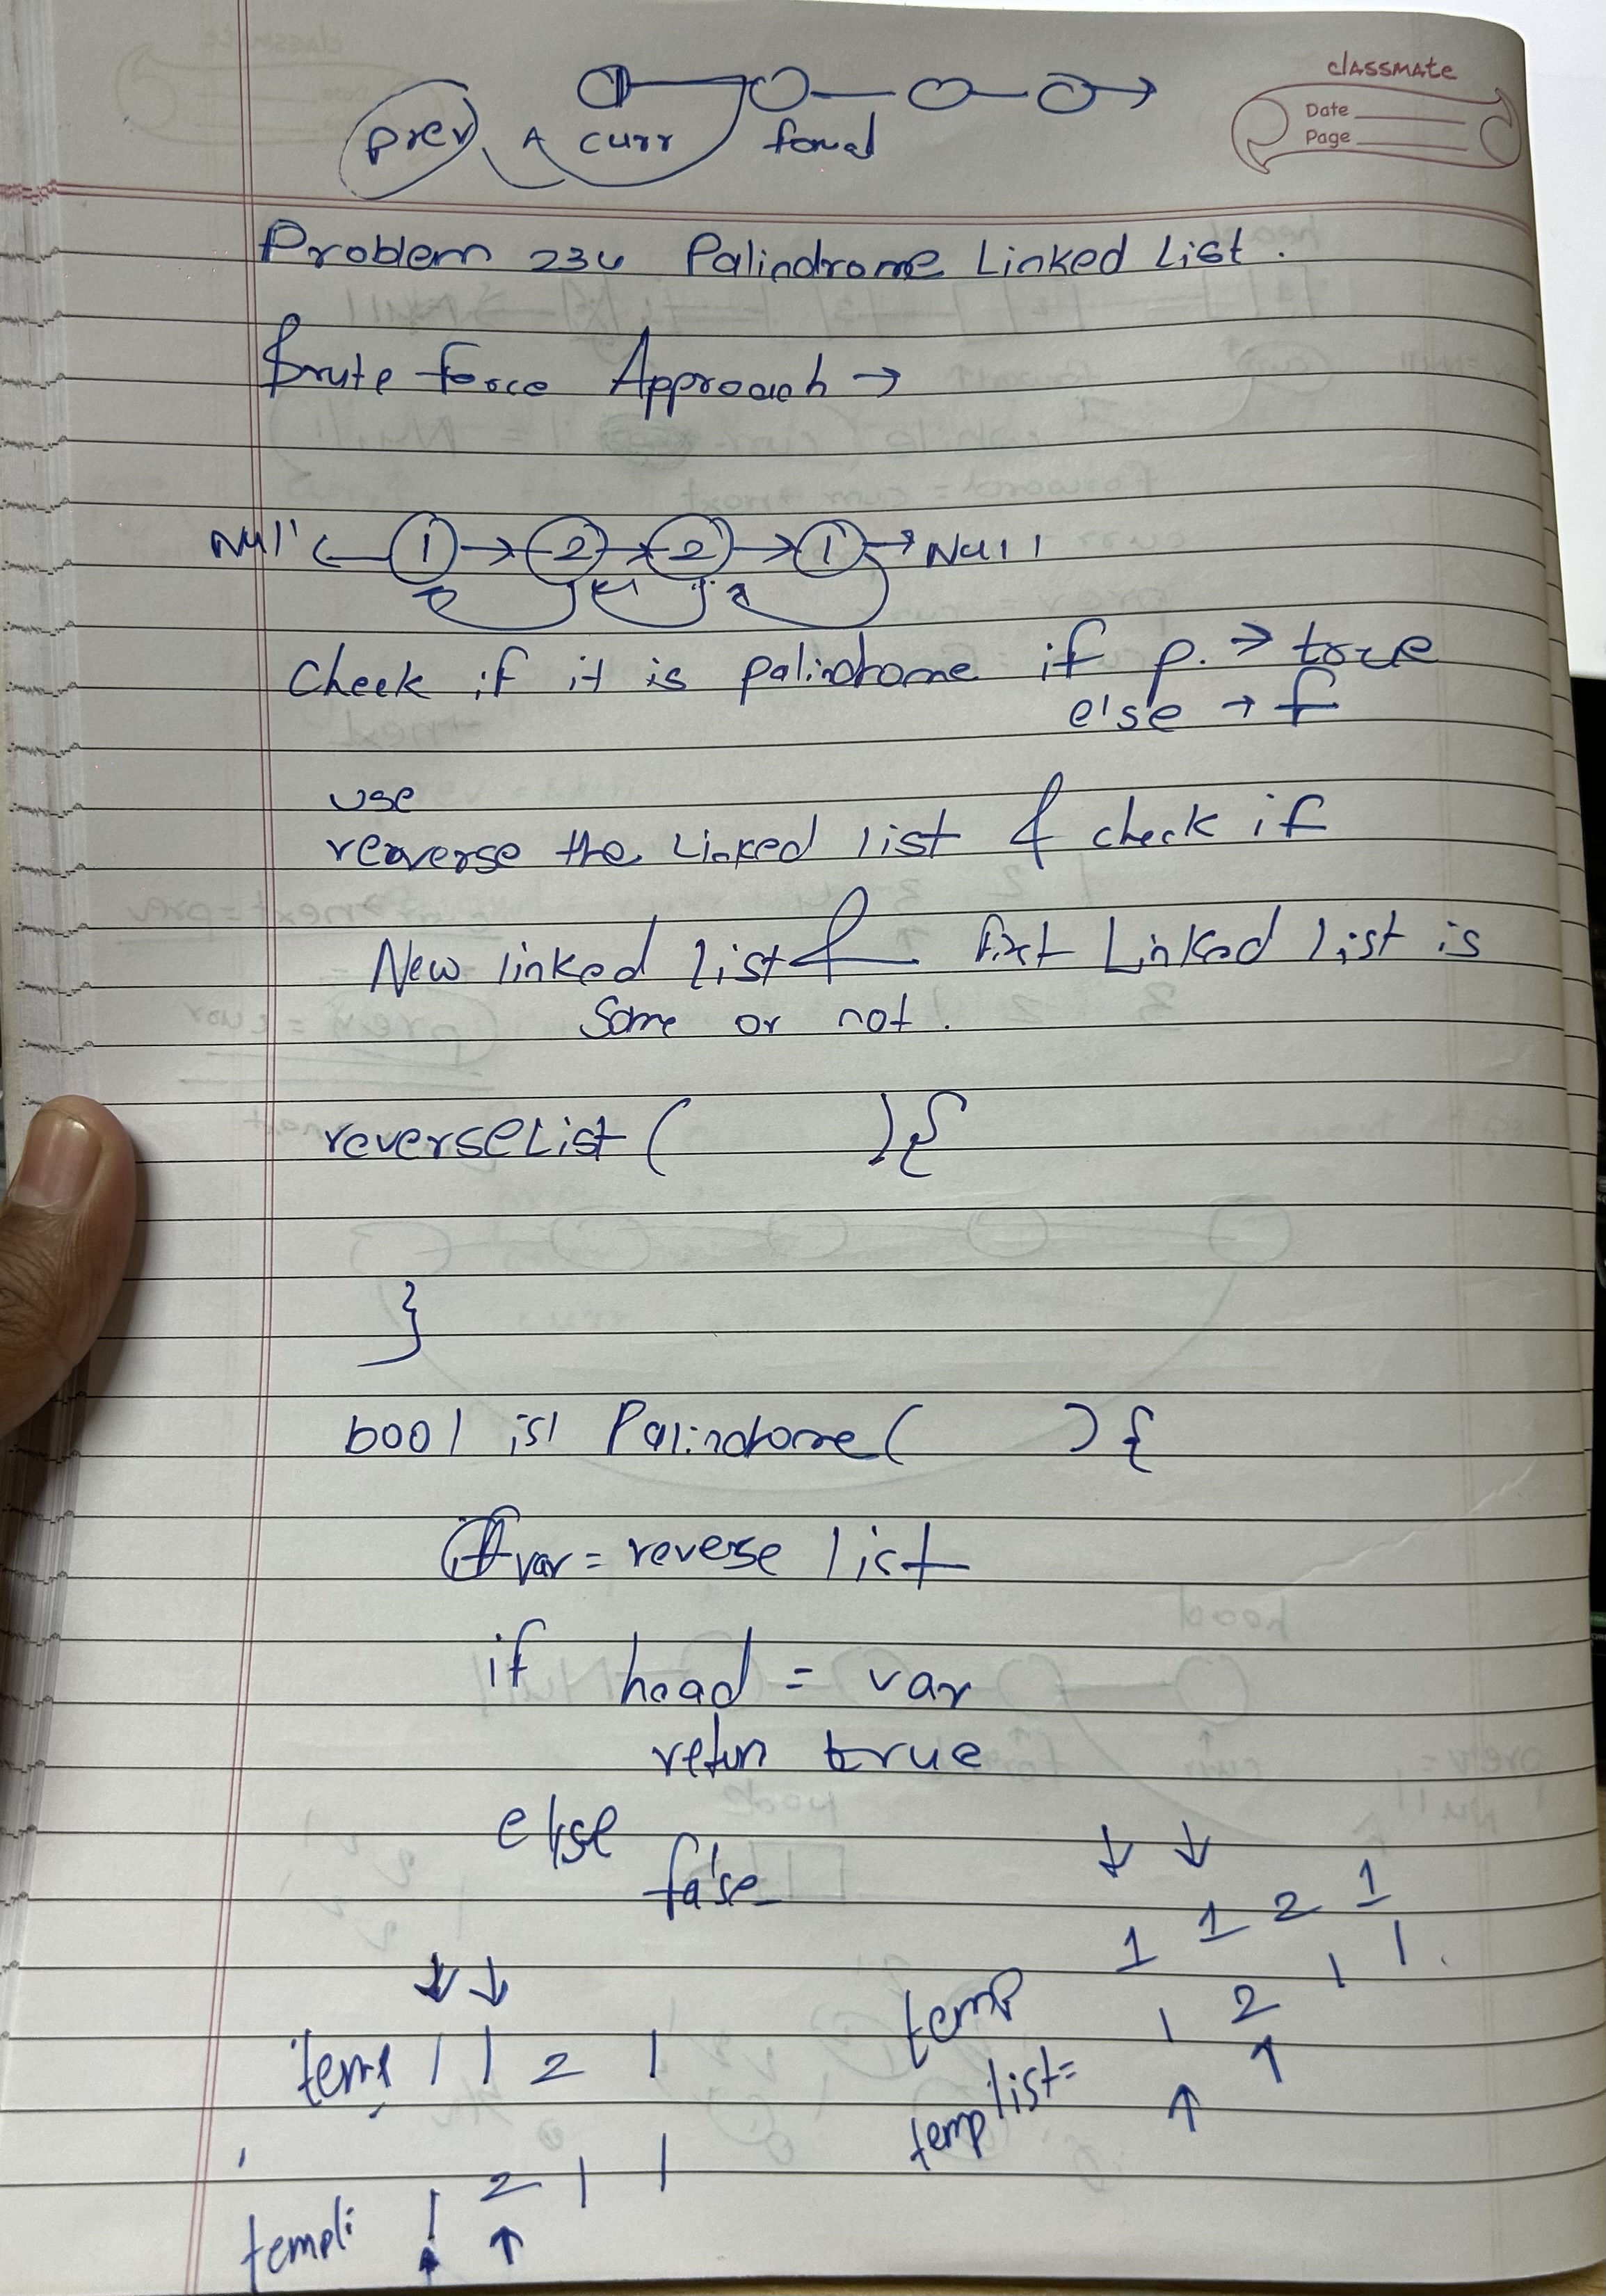 classmate
Date
Page
prev curr forwd
Problem 234 Palindrome Linked List.
Brute force Approach →
Null ← 1 → 2 → 2 → 1 → Null
Check if it is palindrome if p. → true
else → f
use
reverse the Linked list & check if
New linked list & first Linked list is
Same or not.
reverseList ( ) {
}
bool is Palindrome ( ) {
var = reverse list
if head = var
retun true
else
false
↓ ↓
1 1 2 1
temp
1 2 1 1
temp list=
↑ ↑
↓ ↓
temp 1 1 2 1
templi 1 2 1 1
↑ ↑